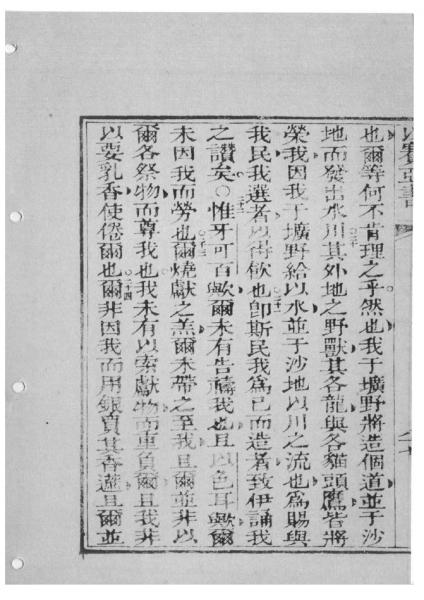 以賽亞書
也爾等何不肯理之乎然也我于壙野將造個道並于沙
地而發出水川其外地之野獸其各龍與各貓頭鷹皆將
榮我因我于壙野給以水並于沙地以川之流也為賜與
我民我選者以得飲也卽斯民我為已而造者致伊誦我
之讚矣○惟牙可百歟爾未有告禱我也且以色耳歟爾
未因我而勞也爾燒獻之羔爾未帶之至我且爾並非以
爾各祭物而尊我也我未有以索獻物而重負爾且我非
以要乳香使倦爾也爾非因我而用銀買其香薳且爾並